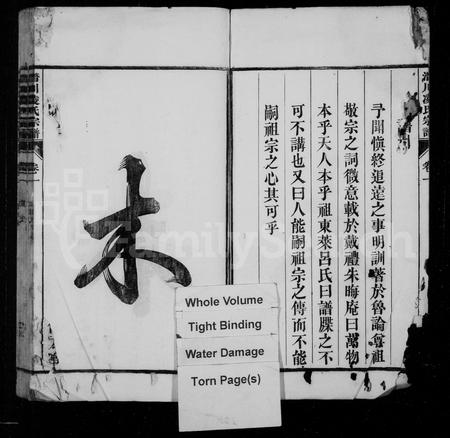 潛川凌氏宗譜 卷一
予聞愼終追遠之事明訓著於魯論尊祖
敬宗之詞微意載於戴禮朱晦庵曰萬物
本乎天人本乎祖東萊呂氏曰譜牒之不
可不講也又曰人能嗣祖宗之傳而不能
嗣祖宗之心其可乎
末
潛川凌氏宗譜 卷一
Whole Volume
Tight Binding
Water Damage
Torn Page(s)
FamilySearch